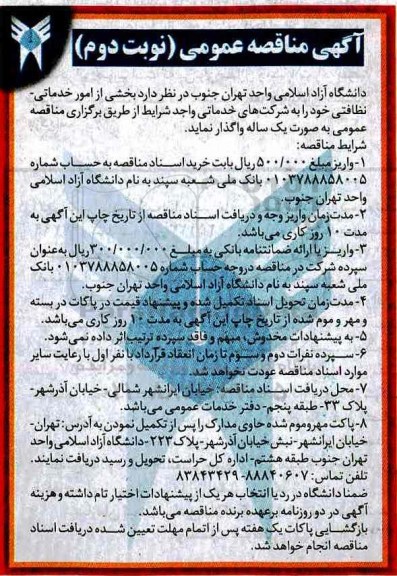 آگهی مناقصه عمومی (نوبت دوم)
دانشگاه آزاد اسلامی واحد تهران جنوب در نظر دارد بخشی از امور خدماتی-
نظافتی خود را به شرکت‌های خدماتی واجد شرایط از طریق برگزاری مناقصه
عمومی به صورت یک ساله واگذار نماید.
شرایط مناقصه:
۱-واریز مبلغ ۵۰۰/۰۰۰ ریال بابت خرید اسناد مناقصه به حساب شماره
۰۱۰۳۷۸۸۸۵۸۰۰۵ بانک ملی شعبه سپند به نام دانشگاه آزاد اسلامی
واحد تهران جنوب.
۲-مدت‌زمان واریز وجه و دریافت اسناد مناقصه از تاریخ چاپ این آگهی به
مدت ۱۰ روز کاری می‌باشد.
۳-واریز یا ارائه ضمانتنامه بانکی به مبلغ ۳۰۰/۰۰۰/۰۰۰ریال به‌عنوان
سپرده شرکت در مناقصه دروجه حساب شماره ۰۱۰۳۷۸۸۸۵۸۰۰۵ بانک
ملی شعبه سپند به نام دانشگاه آزاد اسلامی واحد تهران جنوب.
۴-مدت‌زمان تحویل اسناد تکمیل شده و پیشنهاد قیمت در پاکات در بسته
و مهر و موم شده از تاریخ چاپ این آگهی به مدت ۱۰ روز کاری می‌باشد.
۵- به پیشنهادات مخدوش، مبهم و فاقد سپرده ترتیب‌اثر داده نمی‌شود.
۶-سپرده نفرات دوم و سوم تا زمان انعقاد قرارداد با نفر اول با رعایت سایر
موارد اسناد مناقصه عودت نخواهد شد.
۷- محل دریافت اسناد مناقصه: خیابان ایرانشهر شمالی- خیابان آذرشهر-
پلاک ۳۳- طبقه پنجم- دفتر خدمات عمومی می‌باشد.
۸-پاکت مهروموم شده حاوی مدارک را پس از تکمیل نمودن به آدرس: تهران-
خیابان ایرانشهر-نبش خیابان آذرشهر-پلاک ۲۲۳-دانشگاه آزاد اسلامی واحد
تهران جنوب طبقه هشتم- اداره کل حراست، تحویل و رسید دریافت نمایند.
تلفن تماس: ۸۸۸۴۰۶۰۷-۸۳۸۴۳۴۲۹
ضمنا دانشگاه در رد یا انتخاب هر یک از پیشنهادات اختیار تام داشته و هزینه
آگهی در دو روزنامه برعهده برنده مناقصه می‌باشد.
بازگشایی پاکات یک هفته پس از اتمام مهلت تعیین شده دریافت اسناد
مناقصه انجام خواهد شد.